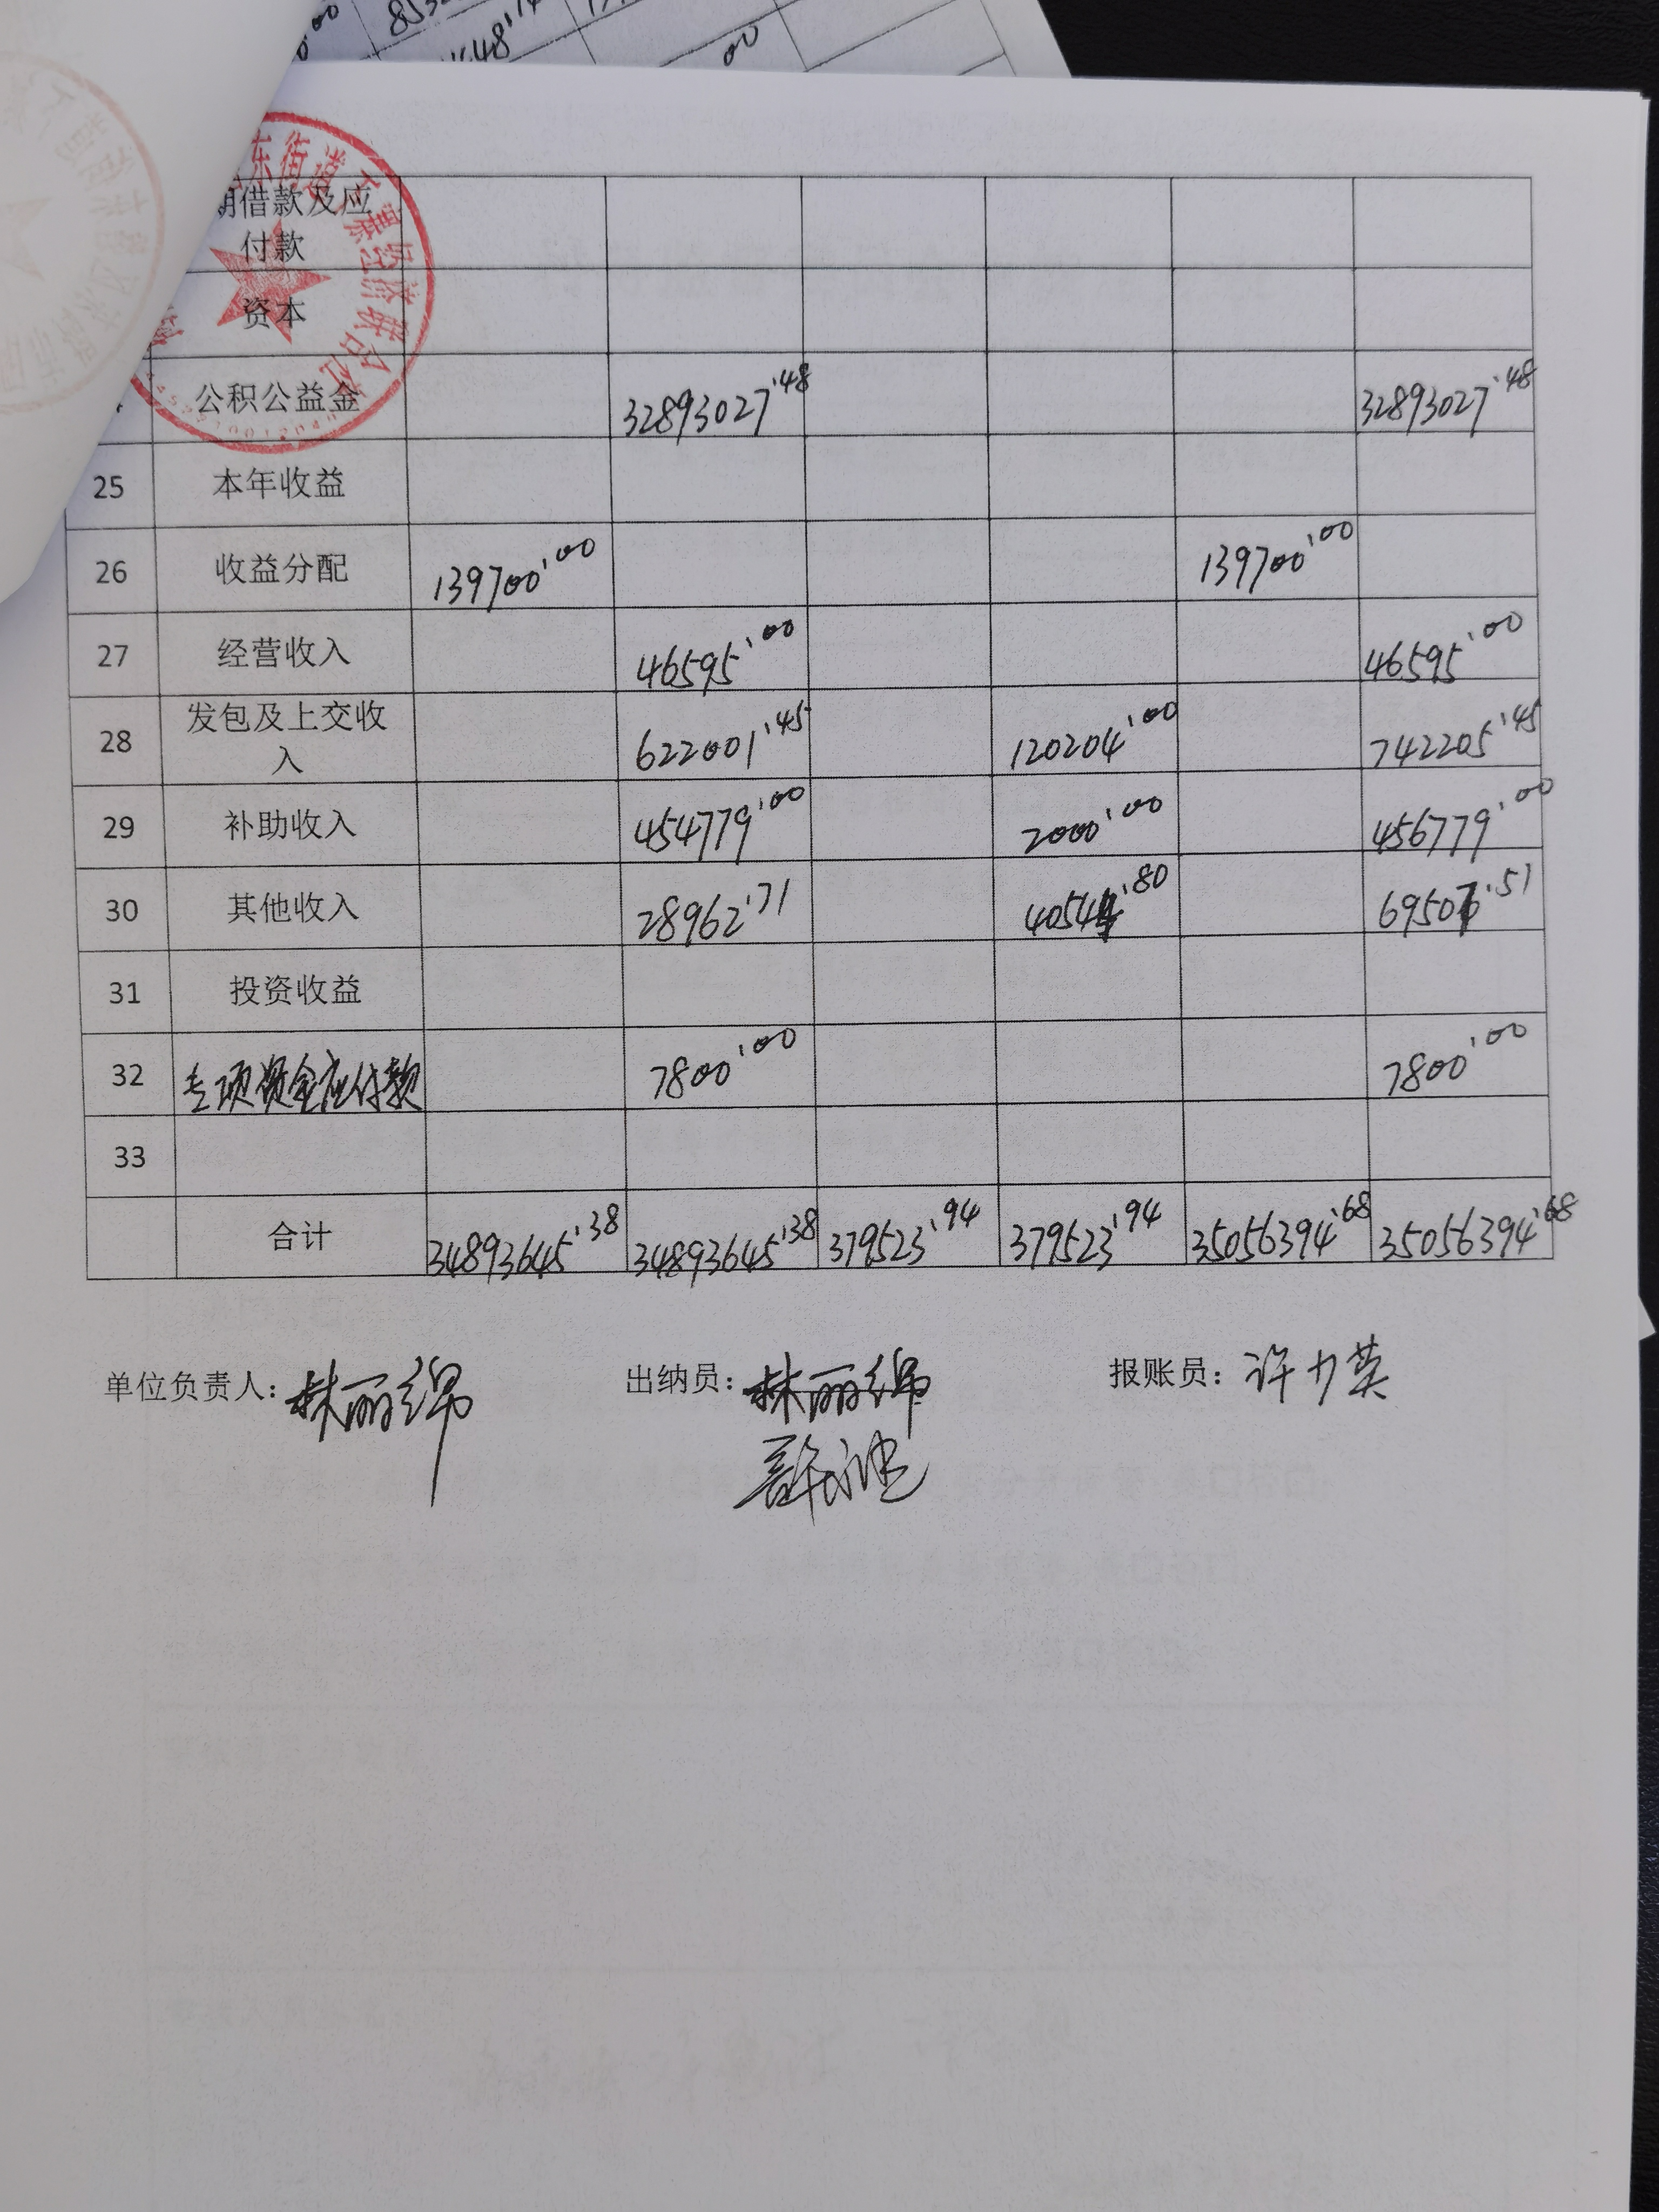 期借款及应
付款
资本
公积公益金 32893027.48 32893027.48
25 本年收益
26 收益分配 139700.00 139700.00
27 经营收入 46595.00 46595.00
28 发包及上交收
入 622001.45 120204.00 742205.45
29 补助收入 454779.00 2000.00 456779.00
30 其他收入 28962.71 40544.80 69507.51
31 投资收益
32 专项资金应付款 7800.00 7800.00
33
合计 34893645.38 34893645.38 379523.94 379523.94 35056394.68 35056394.68
单位负责人：林丽绵 出纳员：林丽绵 报账员：许力英